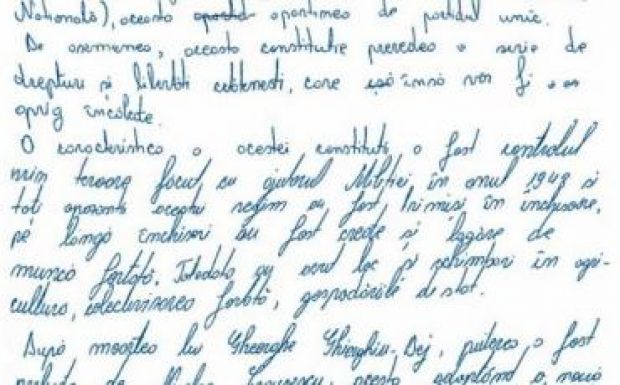 Națională), aceasta aparținea de partidul unic.
De asemenea, aceasta constituție prevedea o serie de
drepturi și libertăți cetățenești, care însă vor fi
aprig încălcate.
O caracteristica a acestei constituți a fost controlul
prin teroare făcut cu ajutorul Miliției în anul 1949 și
toți oponenți acestui regim au fost trimiși în închisoare,
pe langă închisori au fost create și lagăre de
muncă forțată. Totodata au avut loc și schimbari în agri-
cultura, colectivizarea forțată, gospodăriile de stat.
După moartea lui Gheorghe Ghiorghiu-Dej, puterea a fost
preluata de Ceaușescu, acesta adoptând o nouă